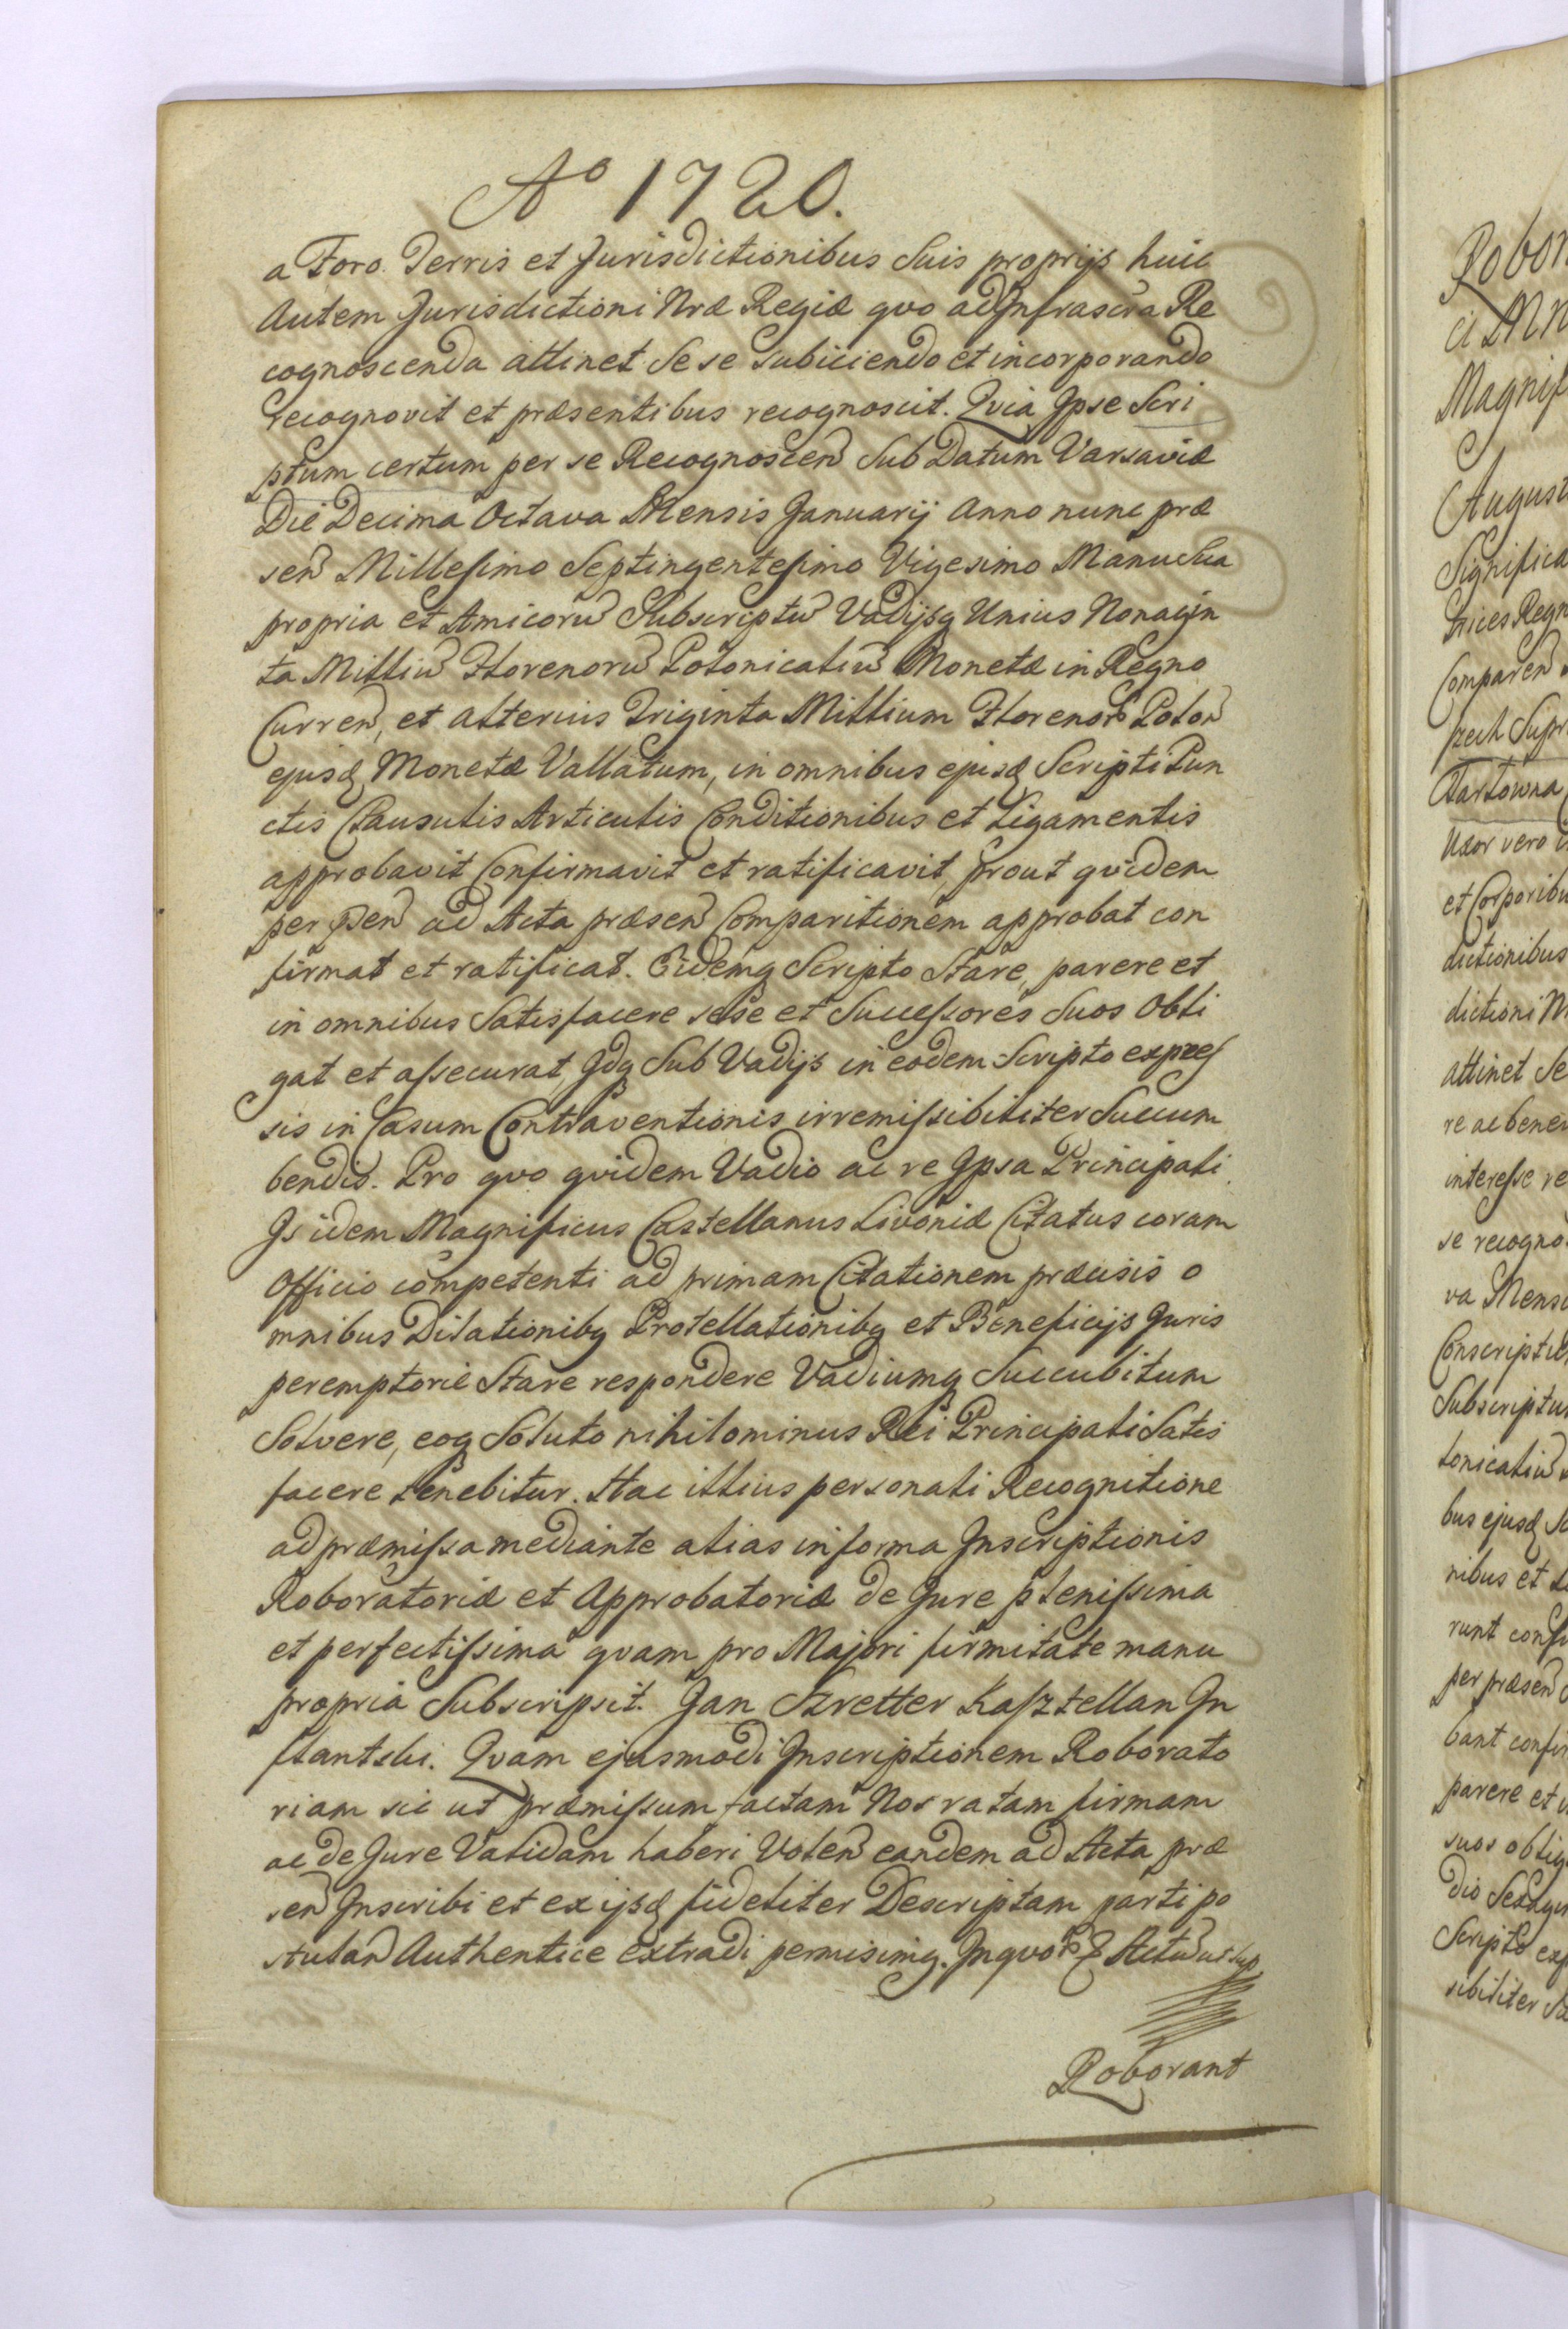 Aº 1720.
a Foro Terris et Jurisdictionibus Suis proprijs huic
Autem Jurisdictioni Nræ Regiæ qvo ad Infrascra Re
cognoscenda attinet Se se subiiciendo et incorporando
recognovit et præsentibus recognoscit. Qvia Ipse Scri
ptum certum per se Recognoscen̄ Sub Datum Varsaviæ
Die Decima Octava Mensis Januarij Anno nunc præ
sen̄ Millesimo Septingentesimo Vigesimo Manu Sua
propria et Amicorū Subscriptū Vadijsq Unius Nonagin
ta Milliū Florenorū Polonicaliū Monetæ in Regno
Curren̄, et alterius Triginta Millium Florenor Polon̄
ejusd Monetæ Vallatum, in omnibus ejusd Scripti Pun
ctis Clausulis Articulis Conditionibus et Ligamentis
approbavit Confirmavit et ratificavit, prout qvidem
per psen̄ ad Acta præsen̄ Comparitionem approbat con
firmat et ratificat. Eidemq Scripto Stare, parere et
in omnibus Satisfacere sese et Successores Suos Obli
gat et assecurat Idq Sub Vadijs in eodem Scripto expres
sis in Casum Contraventionis irremissibiliter Succum
bendis. Pro qvo qvidem Vadio ac re Ipsa Principali
Is idem Magnificus Castellanus Livoniæ Citatus coram
Officio competenti ad primam Citationem præcisis o
mnibus Dilationibq Protellationibq et Beneficijs Juris
peremptorie Stare respondere Vadiumq Succubitum
Solvere, eoq Soluto nihilominus Rei Principali Satis
facere tenebitur. Hac illius personali Recognitione
ad præmissa mediante alias in forma Inscriptionis
Roboratoriæ et Approbatoriæ de Jure plenissima
et perfectissima qvam pro Majori firmitate manu
propria Subscripsit. Jan Szretter Kasztellan In
flantski. Qvam ejusmodi Inscriptionem Roborato
riam sic ut præmissum factam Nos ratam firmam
ac de Jure Validam haberi Volen̄ eandem ad Acta præ
sen̄ Inscribi et ex ijsd fideliter Descriptam parti po
stulan̄ Authentice extradi permisimq. In qvor Actū ut sup
Roborant